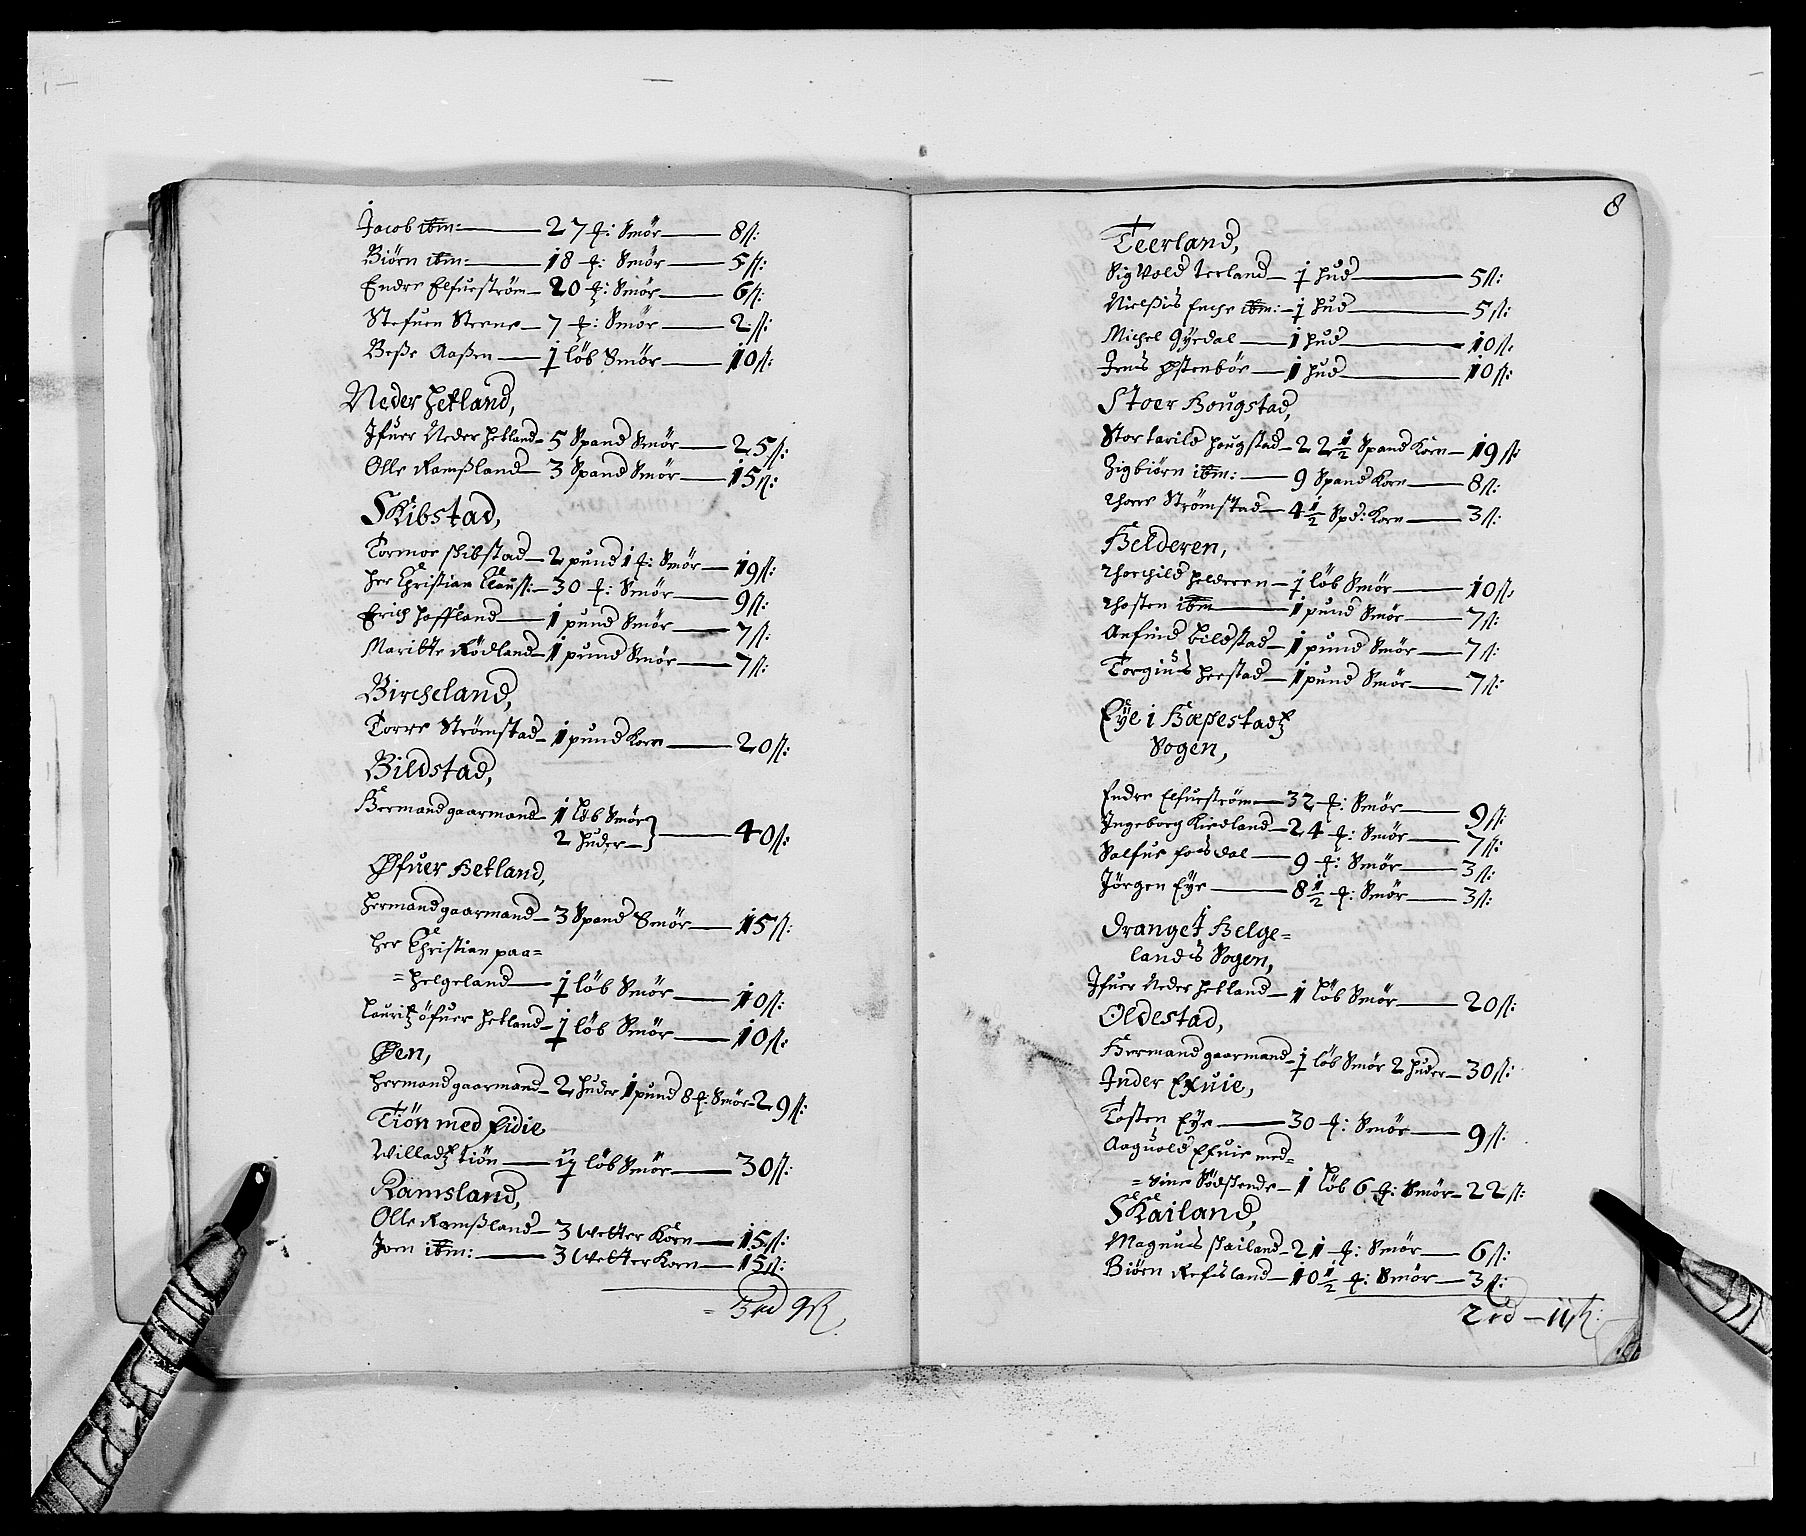 Jacob ibm: 27 ℔: Smör 8 ß:
Biörn ibm: 18 ℔: Smör 5 ß:
Endre Elfueström 20 ℔: Smör 6 ß:
Stefuen Steene 7 ℔: Smör 2 ß:
Besse Aaßen ½ löb Smör 10 ß:
Neder Hetland,
Jfuer Neder Hetland 5 Spand Smör 25 ß:
Olle Ramßland 3 Spand Smör 15 ß:
Skibstad,
Tormoe skibstad 2 pund 1 ℔: Smör 19 ß:
Her Christian Clauss: 30 ℔: Smör 9 ß:
Erich Hoffland 1 pund Smör 7 ß:
Maritte Rödland 1 pund Smör 7 ß:
Bircheland,
Torre Strömstad 1 pund Korn 20 ß:
Bildstad,
Hermand gaarmand 1 löb Smör
2 huder 40 ß:
Øfuer Hetland,
Hermand gaarmand 3 Spand Smör 15 ß:
Her Christian paa=
=Helgeland ½ löb Smör 10 ß:
Lauritz öfuer Hetland ½ löb Smör 10 ß:
Øen,
Hermand gaarmand 2 huder 1 pund 8 ℔: Smör 29 ß:
Tiön med Eidie
Willadtz tiön 1½ löb Smör 30 ß:
Ramsland,
Olle Ramßland 3 Wetter Korn 15 ß:
Joen ibm: 3 Wetter Korn 15 ß:
8
Teerland,
Sigvold terland ½ hud 5 ß:
Nielßis Enche ibm: ½ hud 5 ß:
Michel Gyedal 1 hud 10 ß:
Jens Østenbör 1 hud 10 ß:
Stoer Hougstad,
Stor tarild hougstad 22½ Spand Korn 19 ß:
Sigbiörn ibm: 9 Spand Korn 8 ß:
Thore Strömstad 4½ Spd: Korn 3 ß:
Helderen,
Thorchild Helderen ½ löb Smör 10 ß:
Thosten ibm 1 pund Smör 7 ß:
Anfind bildstad 1 pund Smör 7 ß:
Torgius heestad 1 pund Smör 7 ß:
Eÿe i Hæpestadtz
Sogen,
Endre Elfueström 32 ℔: Smör 9 ß:
Jngeborg Kiedland 24 ℔: Smör 7 ß:
Salfue fosdal 9 ℔: Smör 3 ß:
Jörgen Eye 8½ ℔: Smör 3 ß:
Dranget Helge=
lands Sogen,
Jfuer Neder Hetland 1 löb Smör 20 ß:
Oldestad,
Hermand gaarmand ½ löb Smör 2 huder 30 ß:
Jnder Efuie,
Tosten Eye 30 ℔: Smör 9 ß:
Aaguold Efuie med=
=sine Södskende 1 löb 6 ℔: Smör 22 ß:
Skailand,
Magnus skailand 21 ℔: Smör 6 ß:
Biörn Refsland 10½ ℔: Smör 3 ß:
2 rd 11 ß: